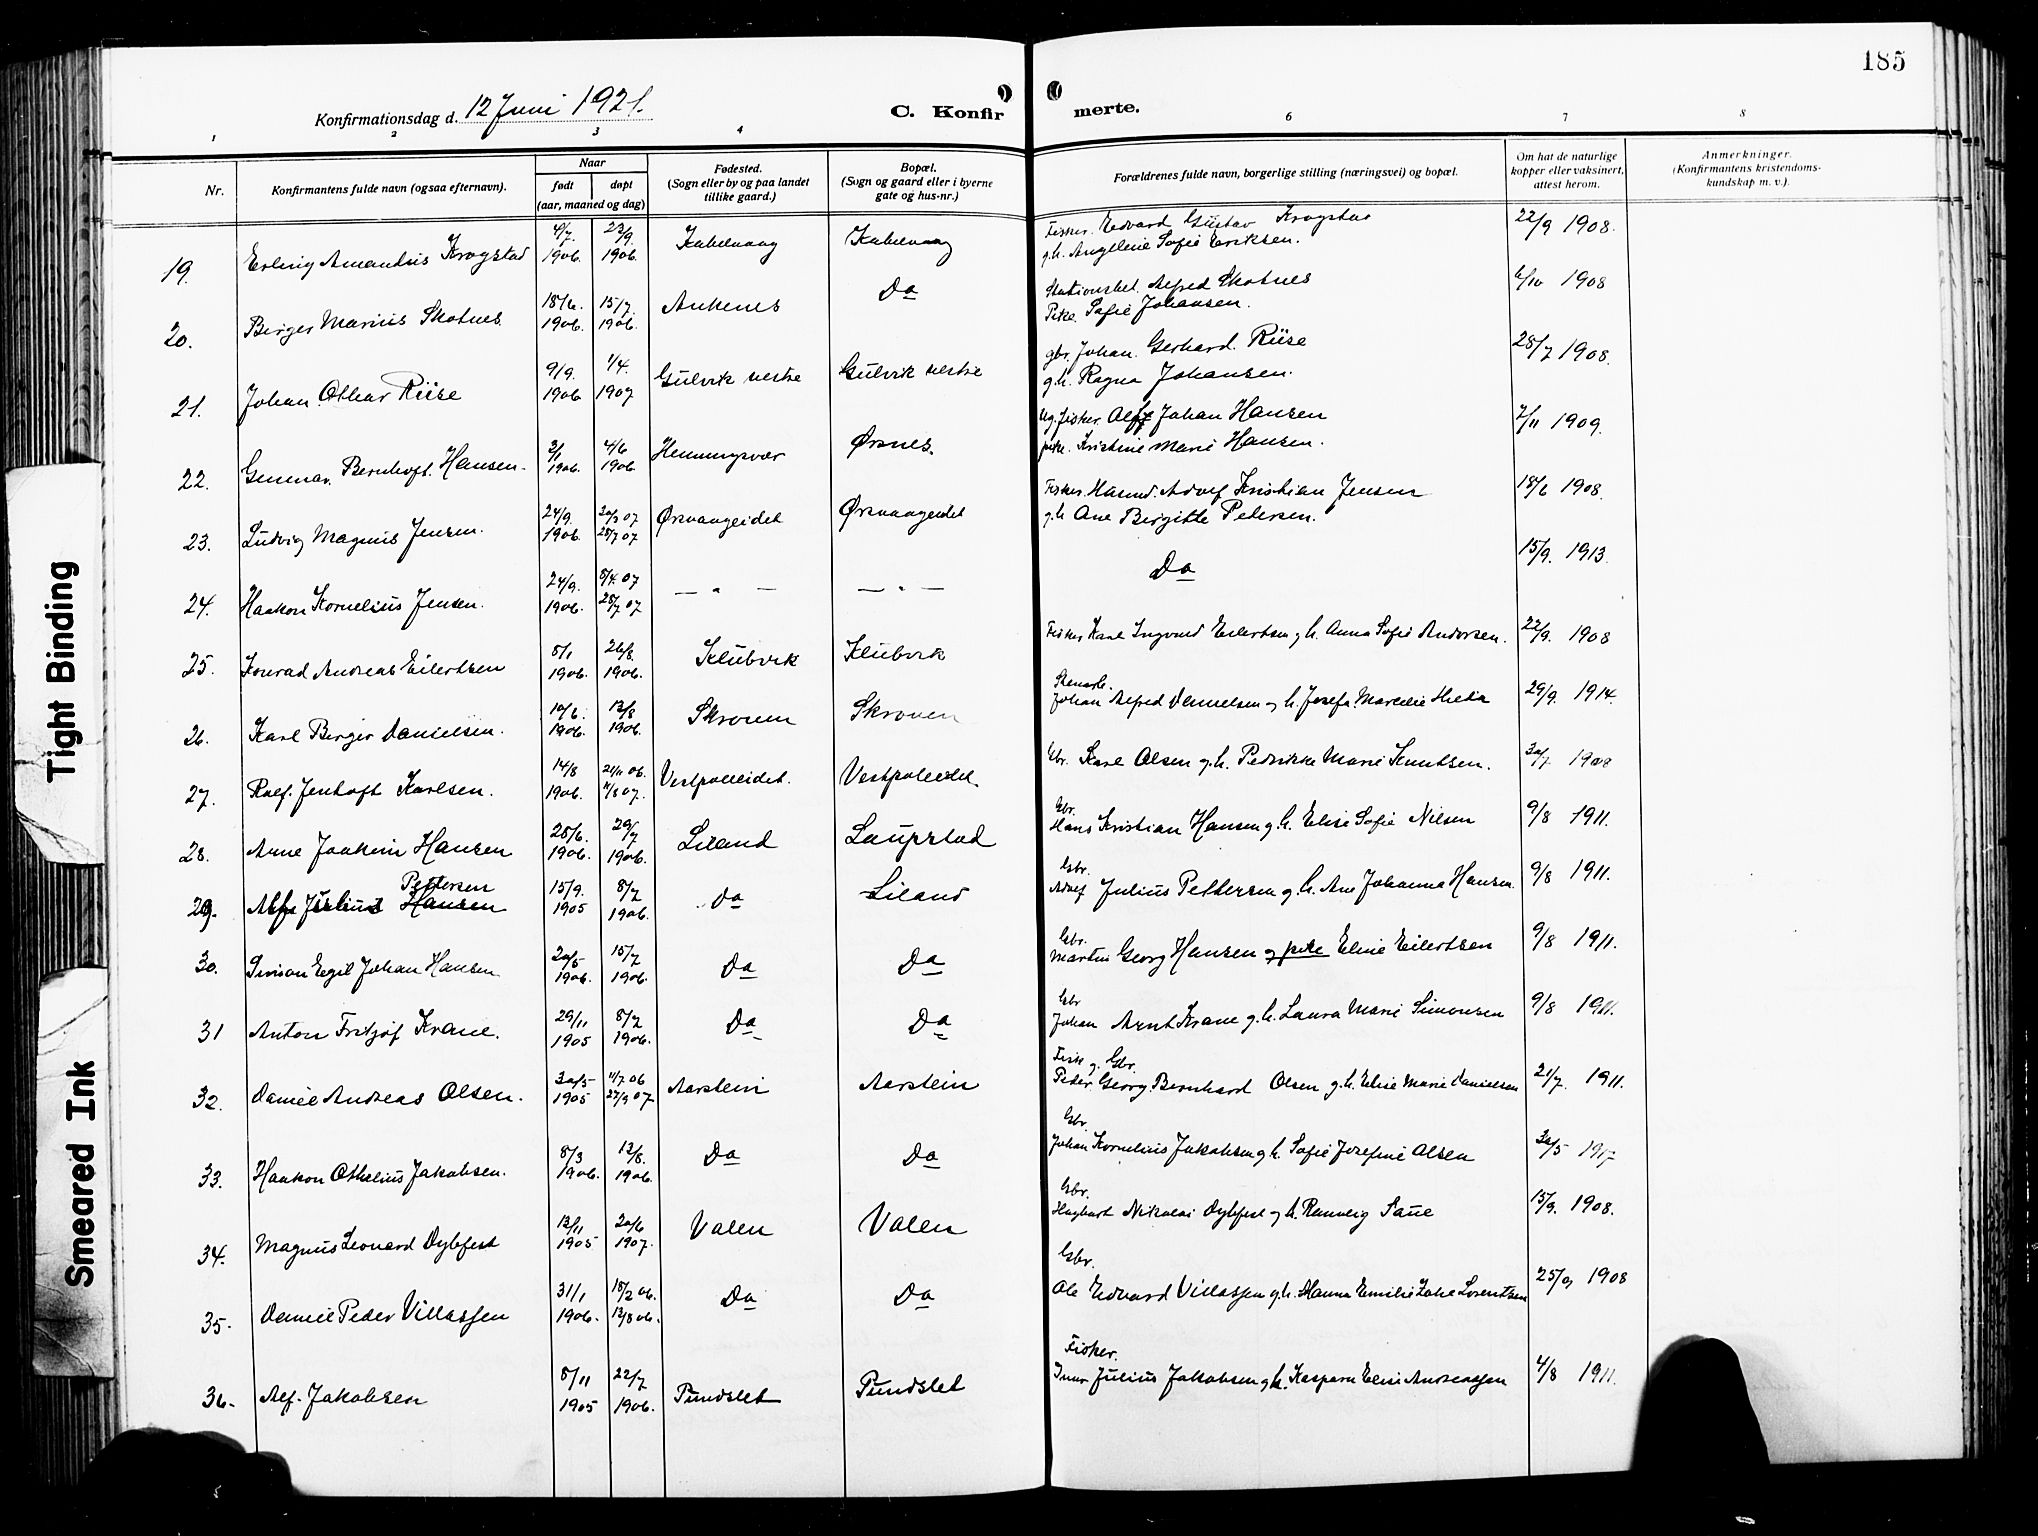 185
Konfirmationsdag d. 12 Juni 1921.
C. Konfirmerte.
1 2 3 4 6 7 8
Nr.
Konfirmantens fulde navn (ogsaa efternavn).
Naar
født døpt
(aar, maaned og dag)
Fødested.
(Sogn eller by og paa landet
tillike gaard.)
Bopæl.
(Sogn og gaard eller i byerne
gate og hus-nr.)
Forældrenes fulde navn, borgerlige stilling (næringsvei) og bopæl.
Om hat de naturlige
kopper eller vaksinert,
attest herom.
Anmerkninger.
(Konfirmantens kristendoms-
kundskap m. v.).
19. Erling Amandus Krogstad 4/7 1906 23/9 1906 Kabelvaag Kabelvaag Fisker. Edvard Gustav Krogstad
g. h. Sofie Eriksen. 22/9 1908.
20. Berger Marius Skotnes 18/6 1906. 15/7 1906. Ankenes Do Alfred Skotnes
Pike. Sofie Johansen. 6/10 1908
21. Johan Othar Riise 9/9. 1906 1/4. 1907 Gulvik vestre Gulvik vestre gbr. Johan Gerhard Riise
g. h. Ragna Johansen. 28/7 1908.
22. Gunnar Bernhoft Hansen. 3/1 1906. 4/6 1906 Henningsvær Ørsnes. Ug. fisker Alf Johan Hansen
pike. Kristine Marie Hansen. 7/11 1909.
23. Ludvig Magnus Jensen. 24/9. 1906. 30/3 07 28/7 07 Ørsvaageidet Ørsvaageidet Fisker Husmd. Adolf Kristian Jensen
g. h Ane Birgitte Petersen. 18/6 1908.
24. Haakon Kornelius Jensen. 24/9. 1906. 5/4. 07 28/7 07 — " — — " — Do 15/9. 1913
25. Konrad Andreas Eilertsen 5/1 1906. 26/8. 1906. Klubvik Klubvik Fisker Karl Ingvald Eilertsen g. h. Anna Sofie Andersen. 22/9. 1908
26. Karl Birger Danielsen. 10/6. 1906. 12/8 1906. Skroven Skroven
Johan Alfred Danielsen g. h. Josefa 29/9. 1914.
27. Rolf Jenhoft Karlsen. 14/8 1906. 21/11 06. 11/8 07. Vestpolleidet. Vestpolleidet Gbr. Karl Olsen g. h. Pedrikke Marie Knutsen. 30/7 1908
28. Arne Joakim Hansen 28/6. 1906. 29/7 1906. Liland Laupstad Gbr.
Hans Kristian Hansen g. h. Elise Sofie Nilsen 9/8 1911.
29. Alf Julius Hansen Pettersen 15/9. 1905 8/7 1906. Do Liland Gbr.
Adolf Julius Pettersen g. h. Ane Johanna Hansen. 9/8 1911.
30. Sivison Egil Johan Hansen 20/5 1906. 15/7 1906. Do Do Gbr.
Martin Georg Hansen og pike Eline Eilertsen 9/8 1911.
31 Anton Fritjof Krane. 29/11 1905 8/7 1906. Do Do Gbr
Johan Arnt Krane g. h. Laura Marie Simonsen 9/8 1911.
32. Daniel Andreas Olsen. 30/5 1905 11/7 06 27/9 07 Aarstein Aarstein Fisk g. Gbr.
Peder Georg Bernhard Olsen g. h. Elise Marie Danielsen 21/7. 1911.
33. Haakon Othelius Jakobsen. 8/3 1906. 12/8. 1906. Do Do Gbr.
Johan Kornelius Jakobsen g. h. Sofie Josefine Olsen 30/5 1917
34. Magnus Leonard Dybfest 12/11 1905 20/6 1907. Valen Valen Gbr.
Hagbart Nikolai Dybfest g. h. Rannveig Saue 15/9. 1908.
35. Daniel Peder Villassen 31/1 1906. 18/2 06. 12/8 06. Do Do Gbr.
Ole Edvard Villassen g. h. Hanna Emilie Lorentsen 25/9 1908
36. Alf Jakobsen 5/11 1905 22/7 1906. Pundslet Pundslet Fisker.
Julius Jakobsen g. h. Kaspara Elise Andreassen 4/8 1911.
Tight Binding
Smeared Ink